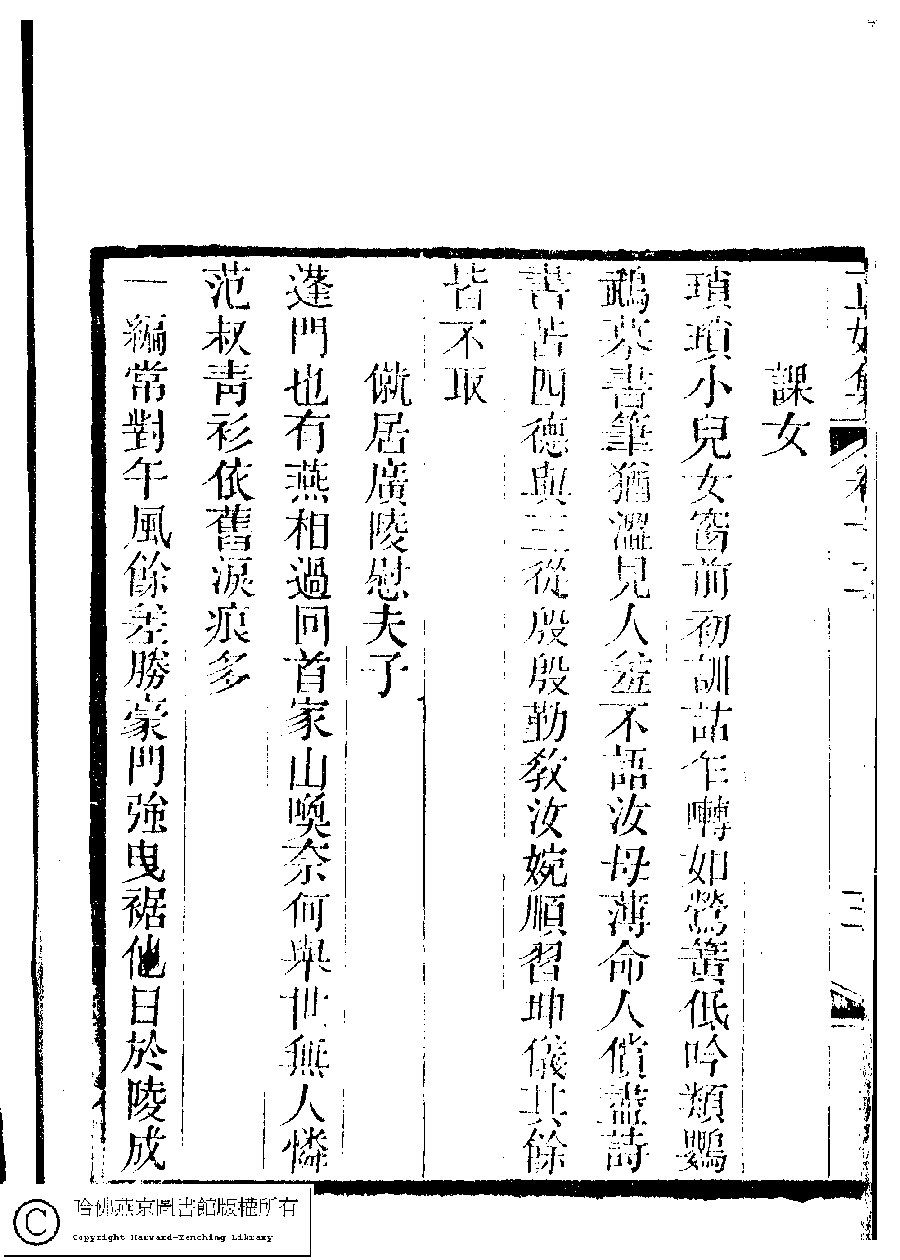 課女
瑣瑣小兒女窗前初訓詁乍囀如鶯簧低吟類鸚
鵡摹書筆猶澀見人羞不語汝母薄命人償盡詩
書苦四德與三從殷殷勤教汝婉順習坤儀其餘
皆不取
僦居廣陵慰夫子
蓬門也有燕相過回首家山喚奈何與世無人憐
范叔青衫依舊淚痕多
一編常對午風餘差勝豪門強曳裾他日於陵成
三
哈佛燕京圖書館版權所有
Copyright Harvard-Yenching Library